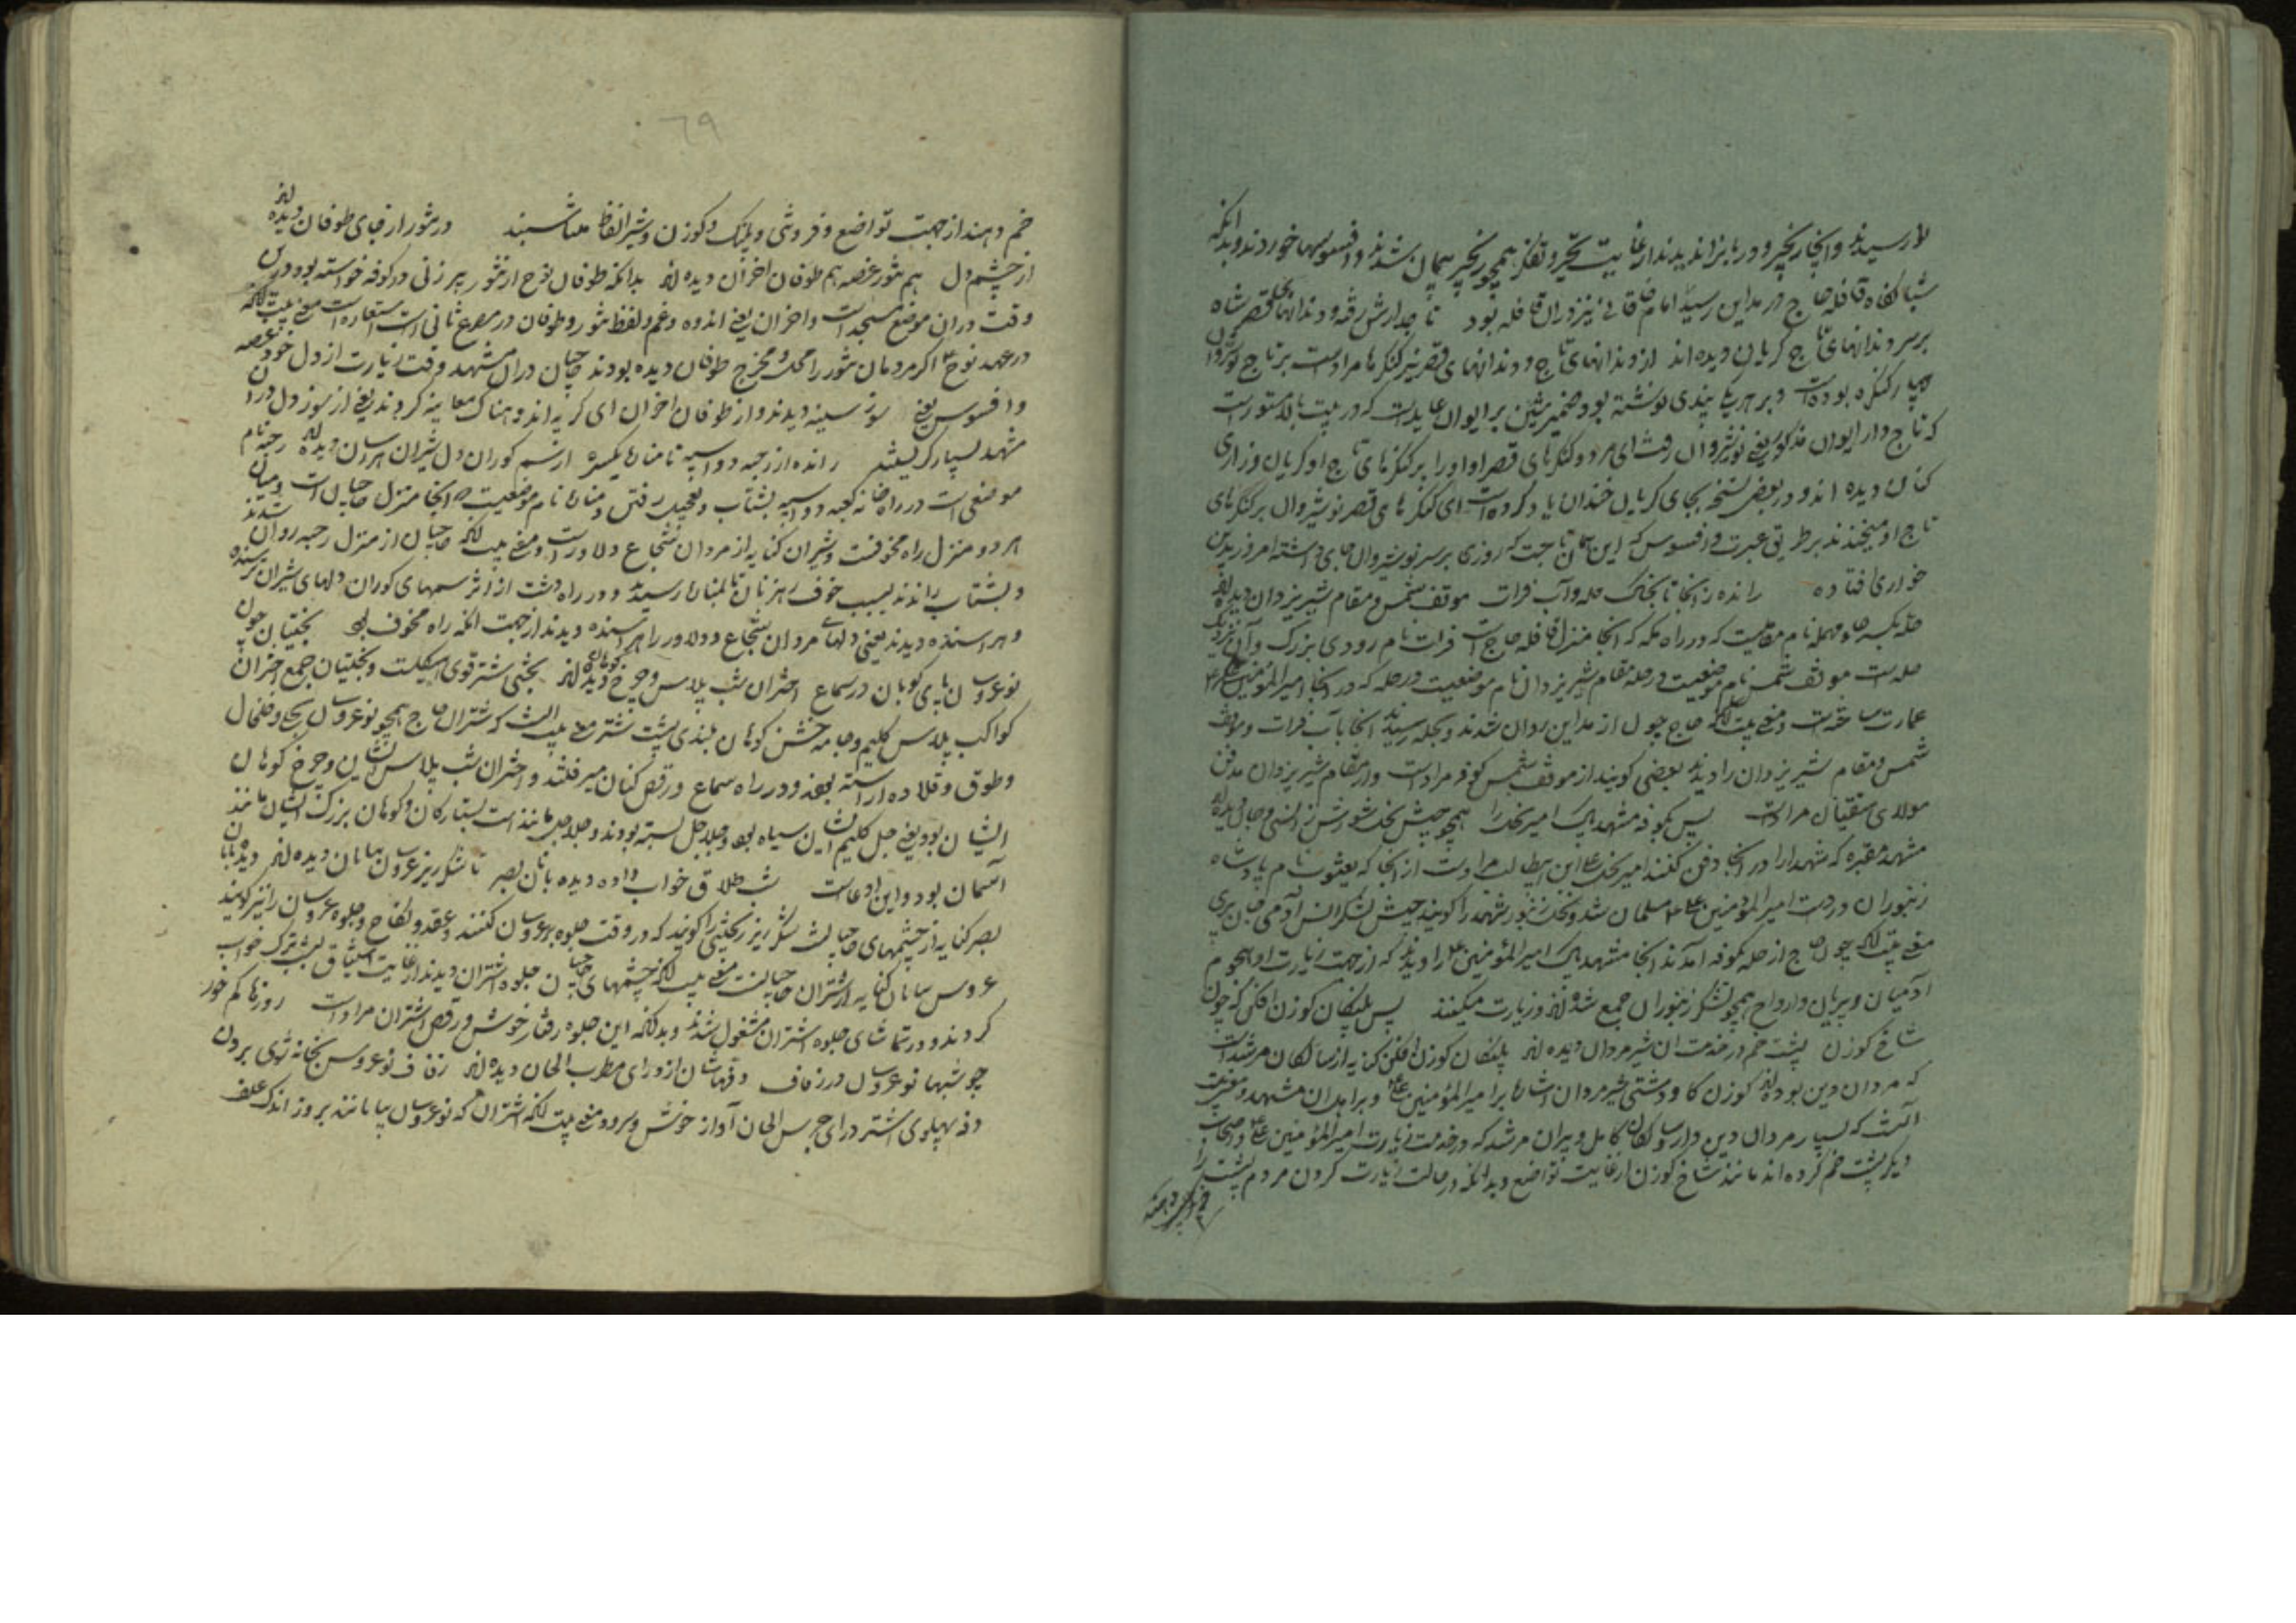 رسیدند و آنجا زنجیر و در بزاندیدند از غایت تحیر و تفکر همچو زنجیر پیچان شدند و افسوسها خوردند و بدانکه
شبانگاه قافله حاج در مداین رسید امام خاقانی نیز در آن قافله بود تاجدارش رفته و دندانهای قصر شاه
بر سر دندانهای تاج گریان دیده‌اند از دندانهای تاج و دندانهای قصر نیز کنگرها مرادست بر تاج نوشیروان
چهار کنگره بوده است و بر هر یک پندی نوشته بود ضمیر شین بر ایوان عایدست که در بیت بالا مستورست
که تاج‌دار ایوان مذکور یعنی نوشیروان رفت ای مرد و کنگرهای قصر او او را بر کنگرهای تاج او گریان و زاری
کنان دیده‌اند و در بعض نسخه بجای گریان خندان یاد کرده است ای کنگرهای قصر نوشیروان بر کنگرهای
تاج او میخندند بر طریق عبرت و افسوس که این همان تاجست که روزی بر سر نوشیروان جای داشته امروز بدین
خواری افتاده رانده ز آنجا تا بخاک حله و آب فرات موقف شمس و مقام شیر یزدان دیده‌اند
حله بکسر حاء مهمله نام مقامیست که در راه مکه که آنجا منزل قافله حاج است فرات نام رودی بزرگ و آن نزدیک
حله است موقف شمس نام موضعیست در حله مقام شیر یزدان نام موضعیست در حله که در آنجا امیرالمؤمنین علی
عمارت ساخته است و معنی بیت آنکه حاج چون از مداین روان شدند و بحله رسیدند آنجا آب فرات و موقف
شمس و مقام شیر یزدان را دیدند بعضی گویند از موقف شمس کوفه مرادست و از مقام شیر یزدان مدفن
مولای متقیان مرادست پس بکوفه مشهد پاک امیر نحل را همچو جیش نحل شورش ز انسی و جان دیده‌اند
مشهد مقبره که شهدا را در آنجا دفن کنند امیر نحل علی ابن ابیطالب مرادست از آنجا که یعسوب نام پادشاه
زنبوران در دست امیرالمؤمنین علی مسلمان شد و نحل زنبور شهد را گویند جیش لشکر انس آدمی جان پری
معنی بیت آنکه چون حاج از حله بکوفه آمدند آنجا مشهد پاک امیرالمؤمنین علی را دیدند که از جهت زیارت او هجوم
آدمیان و پریان و ارواح همچو لشکر زنبوران جمع شده‌اند و زیارت میکنند پس پلنگان گوزن افکن که چون
شاخ گوزن پشت خم در خدمت آن شیر مردان دیده‌اند پلنگان گوزن افکن کنایه از سالکان مرشد است
که مردان دین بوده‌اند گوزن گاو دشتی شیر مردان اشارت بر امیرالمؤمنین علی و بر اهل آن مشهد و معنی بیت
آنست که بسیار مردان دین دار و سالکان کامل و پیران مرشد که در خدمت زیارت امیرالمؤمنین علی و اصحاب
دیگر پشت خم کرده‌اند مانند شاخ گوزن از غایت تواضع و بدانکه در حالت زیارت کردن مردم پشت را
خم دهند از جهت تواضع و فروتنی و پلنگ و گوزن و شیر الفاظ متناسبند در تنور از جای طوفان دیده‌اند
از چشم و دل هم تنور غصه هم طوفان احزان دیده‌اند بدانکه طوفان نوح از تنور پیر زنی در کوفه خواسته بود و درین
وقت در آن موضع مسجد است و احزان یعنی اندوه و غم و لفظ تنور و طوفان در مصرع ثانی استعاره است معنی بیت آنکه
در عهد نوح اگر مردمان تنور را محل و مخرج طوفان دیده بودند حاجیان در آن مشهد وقت زیارت از دل خود تنور غصه
و افسوس یعنی سوز سینه دیدند و از طوفان احزان ای گریه اندوهناک معاینه کردند یعنی از سوز دل در آن
مشهد بسیار گریستند رانده از رحبه دو اسپه تا مناره یکسره از سم گوران دل شیران هراسان دیده‌اند رحبه نام
موضعی است در راه خانه کعبه دو اسپه بشتاب و تعجیل رفتن و مناره نام موضعیست که آنجا منزل حاجیان است و میان
هر دو منزل راه مخوفست و شیران کنایه از مردان شجاع و دلاورست و معنی بیت آنکه حاجیان از منزل رحبه روان شدند
و بشتاب راندند بسبب خوف رهزنان تا بمناره رسیدند و در راه دشت از اثر سمهای گوران دلهای شیران ترسنده
و هراسنده دیدند یعنی دلهای مردان شجاع و دلاور را هراسنده دیدند از جهت آنکه راه مخوف بود بختیان چون
نوعروسان پای کوبان در سماع اختران شب پلاس و چرخ کوهان دیده‌اند بختی شتر قوی هیکلست و بختیان جمع اختران
کواکب پلاس گلیم و جامه خشن کوهان بلندی پشت شتر معنی بیت آنست که شتران حاج همچو نوعروسان بحلی و خلخال
و طوق و قلاده آراسته بودند و در راه سماع و رقص کنان میرفتند و اختران شب پلاس ایشان و چرخ کوهان
ایشان بود یعنی جل گلیم ایشان سیاه بود و جلاجل بسته بودند و جلاجل مانند است بستارگان و کوهان بزرگ ایشان مانند
آسمان بود و این ادعاست شب طلاق خواب داده دیده بانان بصر تا شکرریز عروسان بیابان دیده‌اند دیده‌بانان
بصر کنایه از چشمهای حاجیانست شکرریز کتخدایی را گویند که در وقت جلوه عروسان کنند و عقد و نکاح و جلوه عروسان را نیز گویند
عروس بیابان کنایه از شتران حاجیانست معنی بیت آنکه چشمهای حاجیان جلوه شتران دیدند از غایت اشتیاق بشب ترک خواب
کردند و در تماشای جلوه اشتران مشغول شدند و بدانکه این جلوه رفتار خوش و رقص اشتران مرادست روزها کم خور
چو شبها نوعروسان در زفاف زقه‌شان از درای مطرب الحان دیده‌اند زفاف نوعروس بخانه شوی بردن
دف پهلوی اشتر درای جرس الحان آواز خوش و سرود معنی بیت آنکه اشتران که نوعروسان بیابانند بروز اندک علف